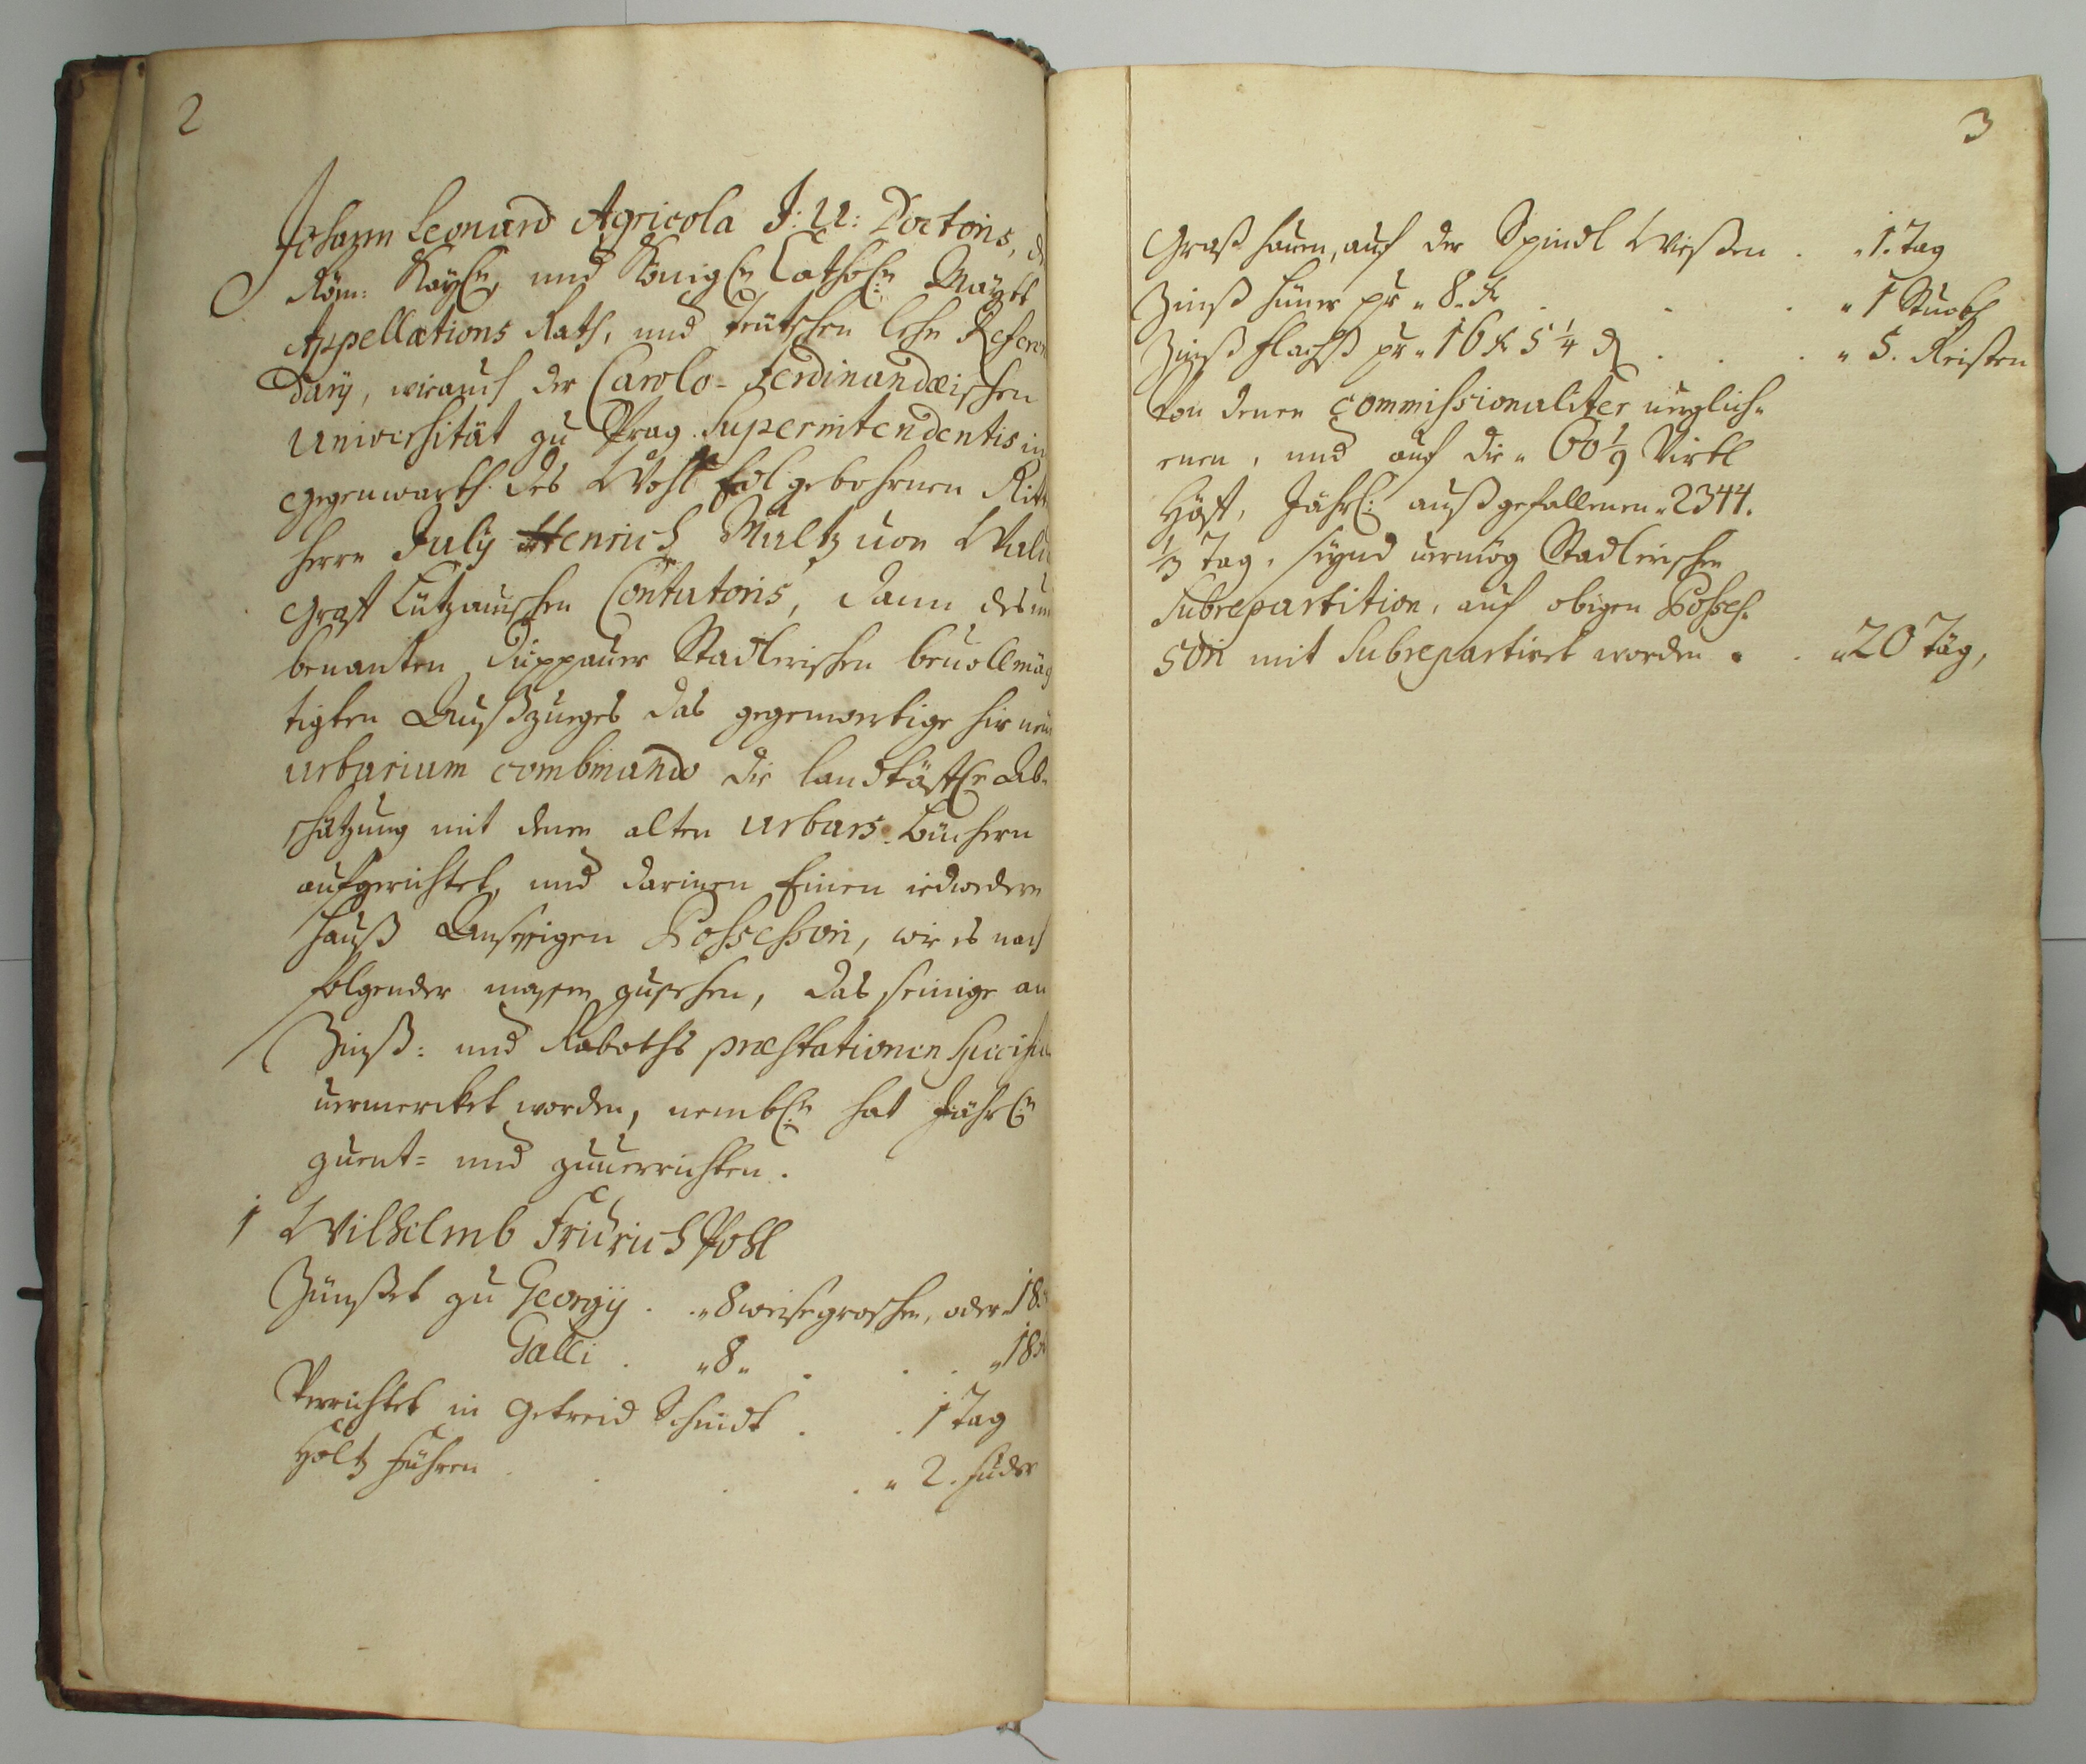 2
Johann Leonard Agricola J: U: Doctoris,
Röm: Kayl:n und Königl:n Cathol:n Mayett
Appellations Rath, und Teütschen Lehn Referen
dary, wie auch der Carolo-Ferdinandæischen
Universität zu Prag Superintendentis in
gegenwarth des Wohl Edl gebohrnen Ritt
Herrn July Henrich Multz von Wald
Graff Lützauischen Contutoris, dann des un
benanten Duppauer Stadlerischen bevollmäg
tigten Außzueges das gegenwertige hir neue
Urbarium combinando die landtäffl:e Ab=
schätzung mit denen alten Urbars-Büchern
aufgerichtet, und darinen Einen iedwedern
Hauß Ansessigen Possessori, wie es nach
folgender massen zusehen, das seinige an
Zinß: und Roboths præstationen specifice
vermercket worden, nembl:n hat Jährl:n
zuent= und zuverrichten.
1 Wilhelmb Fridrich Pohl
Zünßet zu Georgy . . 8 weisegroschen, oder 18
Galli . 8 . . . 18
Verrichtet in getreid Schnidt . . 1 Tag
Holtz führen . . . . 2. fuder
3
Graß hauen, auf der Spindl Wießen . 1. Tag
Zinß hüner pr 8 kr . . . 1 Stuckh
Zinß flachß pr 16 kr 5 1/4 d . . . 5. Reisten
Von denen commissionaliter verglich=
enen, und auf die 60 1/9 Virtl
Höff, Jährl: außgefallenen 2344.
1/3 Tag, seynd vermög Stadlerischen
Subrepartition, auf obigen Posses=
sori mit Subrepartiret worden . . 20 Täg,